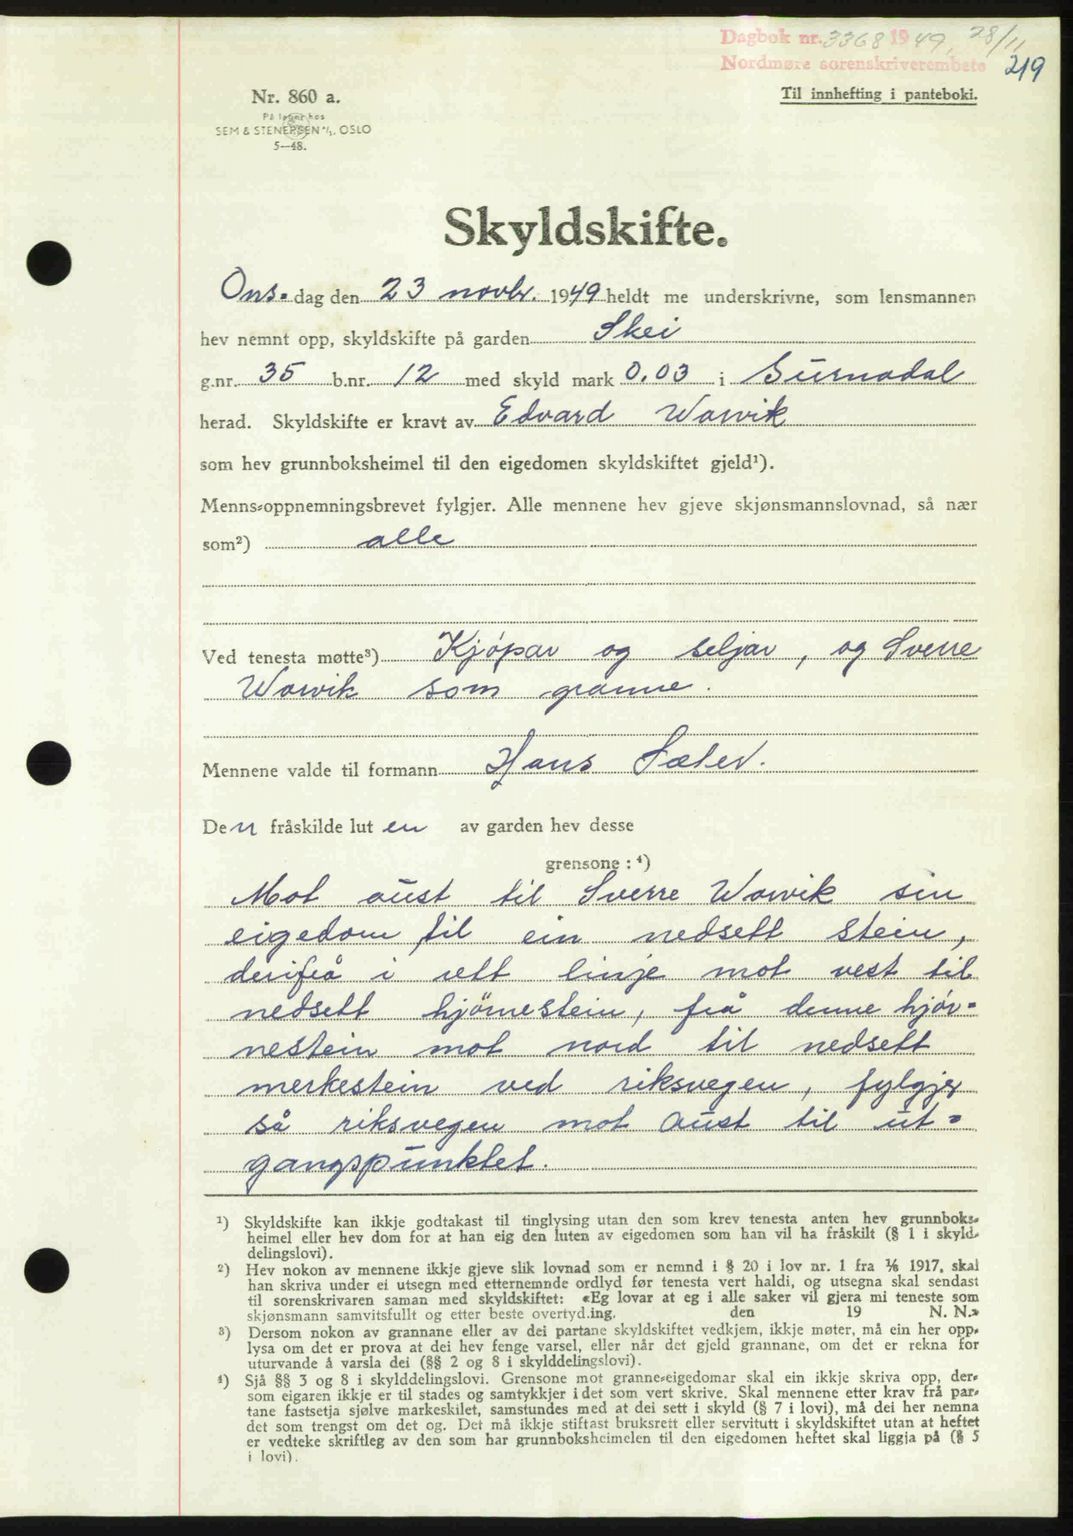 Dagbok nr. 3368 1949, 28/11
Nordmøre sorenskriverembete
219
Nr. 860 a.
Til innhefting i panteboki.
På lager hos
SEM & STENERSEN A/S, OSLO
5—48.
Skyldskifte.
Ons-dag den 23 novbr. 1949 heldt me underskrivne, som lensmannen
hev nemnt opp, skyldskifte på garden Skei
g.nr. 35 b.nr. 12 med skyld mark 0,03 i Surnadal
herad. Skyldskifte er kravt av Edvard Warvik
som hev grunnboksheimel til den eigedomen skyldskiftet gjeld¹).
Menns-oppnemningsbrevet fylgjer. Alle mennene hev gjeve skjønsmannslovnad, så nær
som²) alle
Ved tenesta møtte³) Kjøpar og seljar, og Sverre
Warvik som granne.
Mennene valde til formann Hans Sæter.
Den fråskilde lut en av garden hev desse
grensone : ⁴)
Mot aust til Sverre Warvik sin
eigedom til ein nedsett stein,
derifrå i rett linje mot vest til
nedsett hjørnestein, frå denne hjør-
nestein mot nord til nedsett
merkestein ved riksvegen, fylgjer
så riksvegen mot aust til ut-
gangspunktet.
¹) Skyldskifte kan ikkje godtakast til tinglysing utan den som krev tenesta anten hev grunnboks-
heimel eller hev dom for at han eig den luten av eigedomen som han vil ha fråskilt (§ 1 i skyld-
delingslovi).
²) Hev nokon av mennene ikkje gjeve slik lovnad som er nemnd i § 20 i lov nr. 1 fra 1/6 1917, skal
han skriva under ei utsegn med etternemnde ordlyd før tenesta vert haldi, og utsegna skal sendast
til sorenskrivaren saman med skyldskiftet: «Eg lovar at eg i alle saker vil gjera mi teneste som
skjønsmann samvitsfullt og etter beste overtyding. den 19 N. N.»
³) Dersom nokon av grannane eller av dei partane skyldskiftet vedkjem, ikkje møter, må ein her opp-
lysa om det er prova at dei hev fenge varsel, eller når det gjeld grannane, om det er rekna for
uturvande å varsla dei (§§ 2 og 8 i skylddelingslovi).
⁴) Sjå §§ 3 og 8 i skylddelingslovi. Grensone mot granne-eigedomar skal ein ikkje skriva opp, der-
som eigaren ikkje er til stades og samtykkjer i det som vert skrive. Skal mennene etter krav frå par-
tane fastsetja sjølve markeskilet, samstundes med at dei sett i skyld (§ 7 i lovi), må dei her nemna
det som trengst om det og. Det må ikkje stiftast bruksrett eller servitutt i skyldskiftet utan at heftet
er vedteke skriftleg av den som har grunnboksheimelen til den eigedomen heftet skal liggja på (§ 5
i lovi).